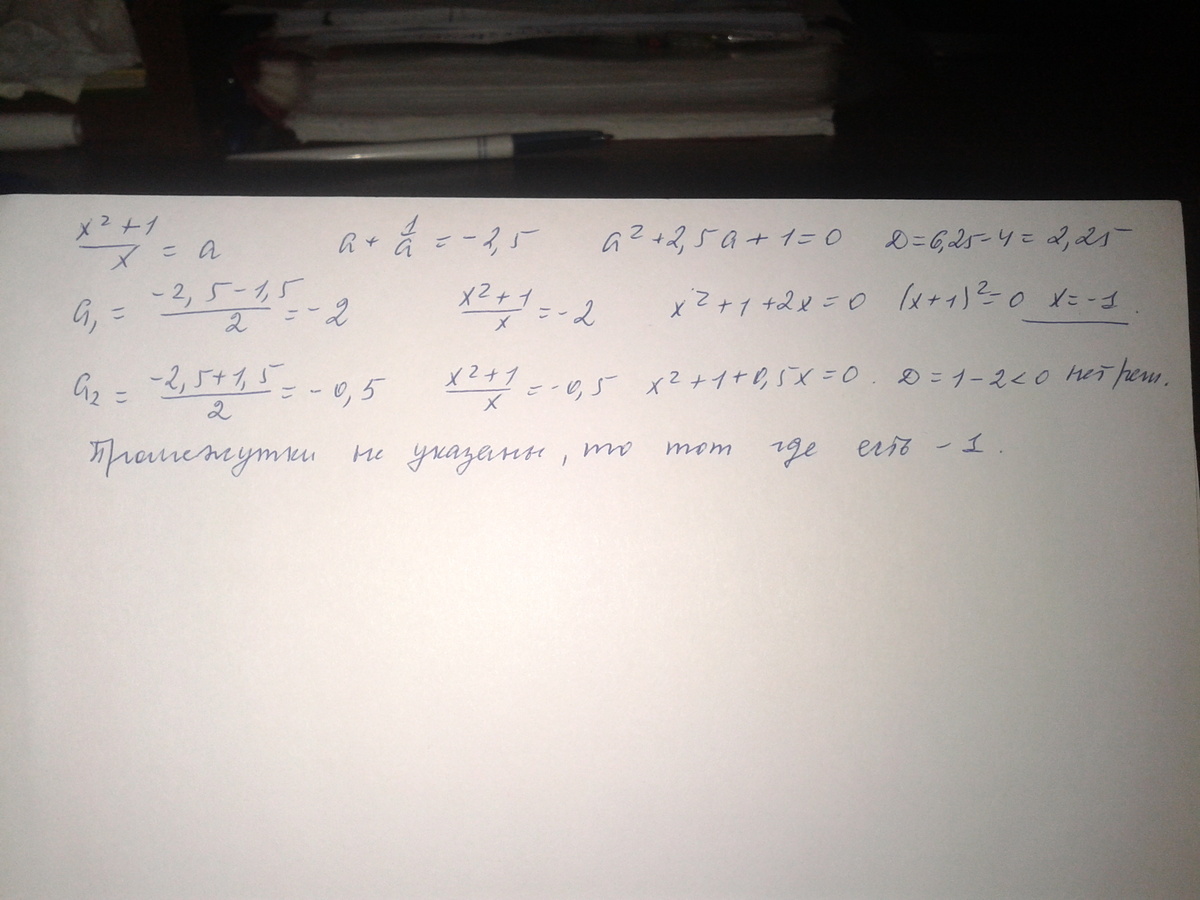 x²+1/x = a   a + 1/a = -2,5   a²+2,5a+1=0   D=6,25-4=2,25
a₁ = -2,5-1,5/2 = -2   x²+1/x = -2   x²+1+2x=0   (x+1)²=0   x=-1.
a₂ = -2,5+1,5/2 = -0,5   x²+1/x = -0,5   x²+1+0,5x=0.   D=1-2<0 нет реш.
Промежутки не указаны, то тот где есть -1.